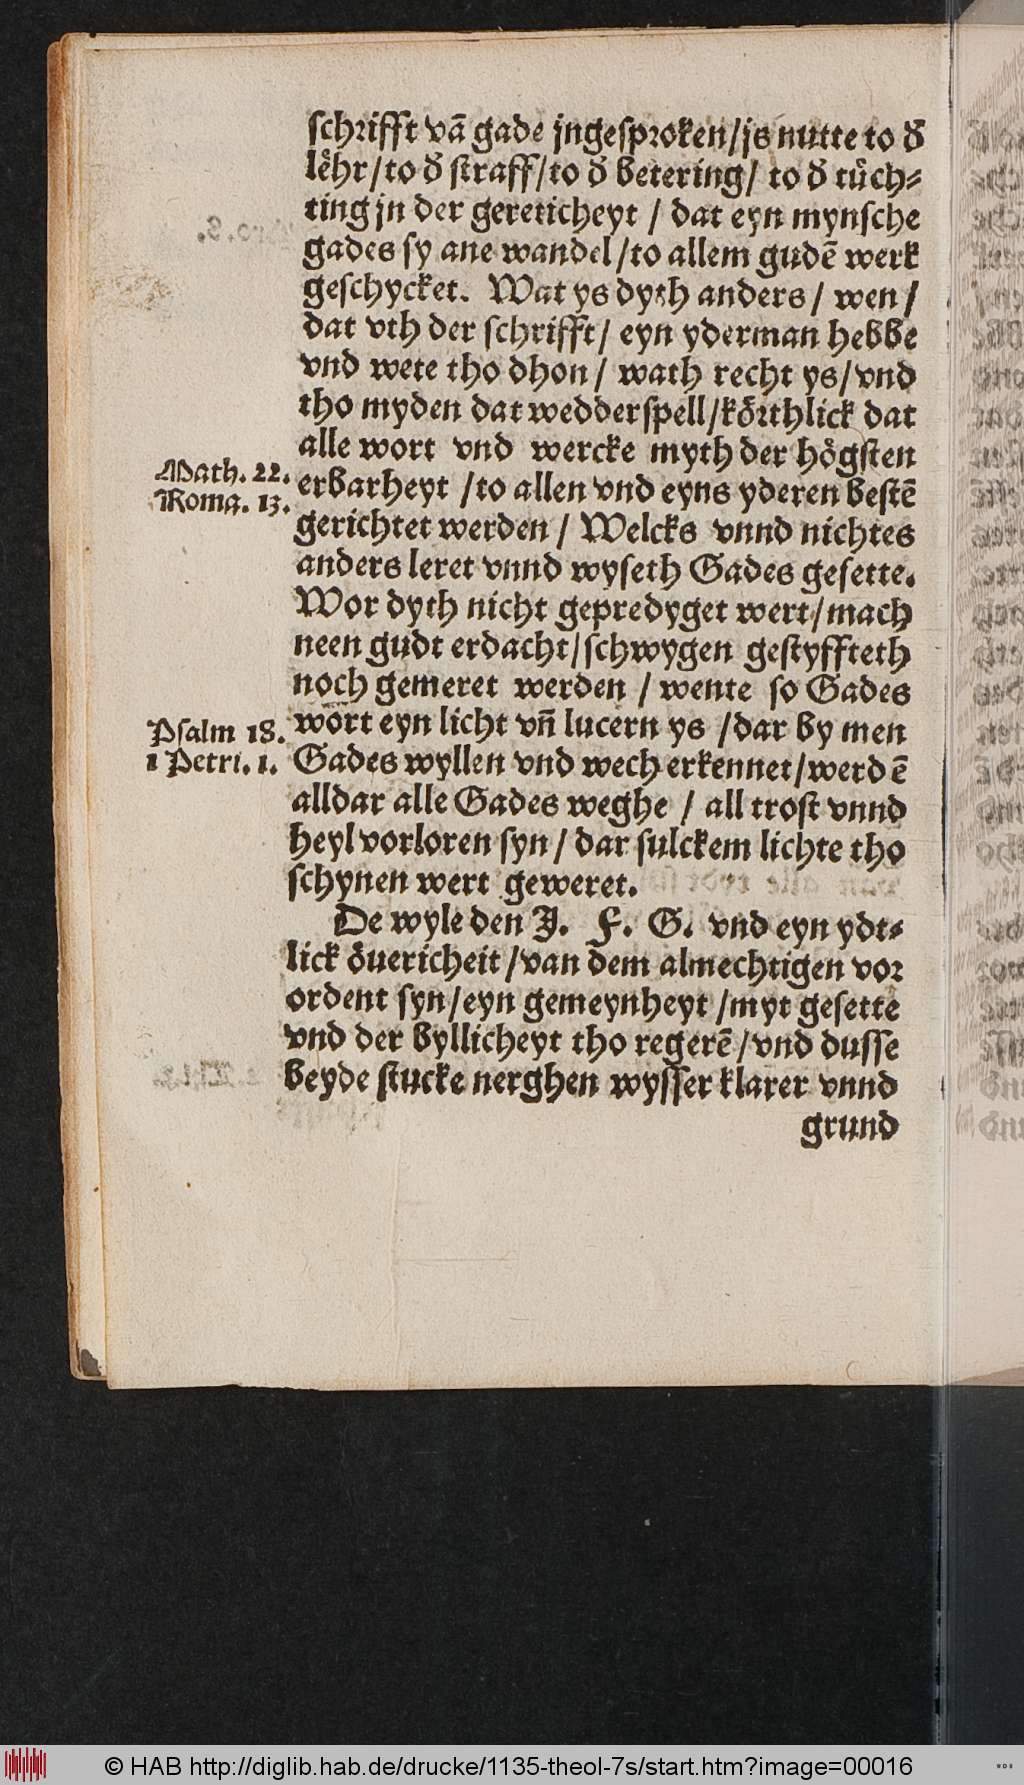 schrifft vā gade jngesproken/js nutte to đ
lehr/to đ straff/to đ betering/ to đ tüch-
ting jn der gereticheyt / dat eyn mynsche
gades sy ane wandel/to allem gudē werk
geschycket. Wat ys dyth anders/ wen/
dat vth der schrifft/ eyn yderman hebbe
vnd wete tho dhon/ wath recht ys/vnd
tho myden dat wedderspell/körthlick dat
alle wort vnd wercke myth der högsten
Math. 22.
Roma. 13.
erbarheyt /to allen vnd eyns yderen bestē
gerichtet werden / Welcks vnnd nichtes
anders leret vnnd wyseth Gades gesette.
Wor dyth nicht gepredyget wert/mach
neen gudt erdacht/schwygen gestyffteth
noch gemeret werden / wente so Gades
Psalm 18.
1 Petri. 1.
wort eyn licht vñ lucern ys /dar by men
Gades wyllen vnd wech erkennet/werdē
alldar alle Gades weghe / all trost vnnd
heyl vorloren syn/ dar sulckem lichte tho
schynen wert geweret.
De wyle den J. F. G. vnd eyn ydt-
lick öuericheit/van dem almechtigen vor
ordent syn/eyn gemeynheyt/myt gesette
vnd der byllicheyt tho regerē/vnd dusse
beyde stucke nerghen wysser klarer vnnd
grund
© HAB http://diglib.hab.de/drucke/1135-theol-7s/start.htm?image=00016